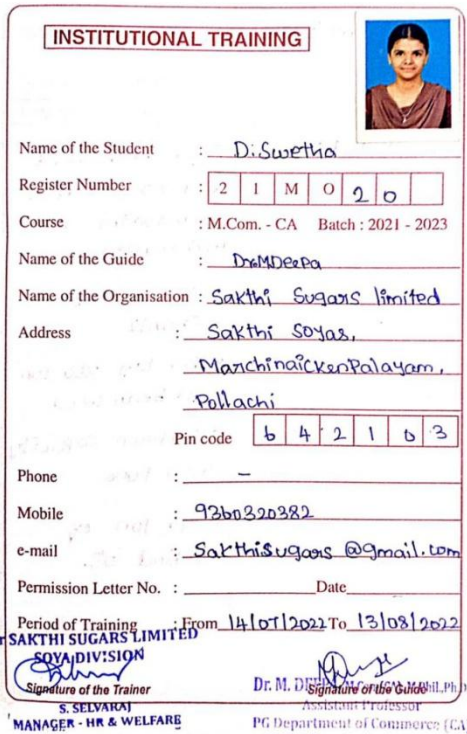 INSTITUTIONAL TRAINING
Name of the Student : D. Swetha
Register Number : 2 1 M O 2 0
Course : M.Com. - CA Batch : 2021 - 2023
Name of the Guide : Dr.M.Deepa
Name of the Organisation : Sakthi Sugars limited
Address : Sakthi Soyas,
Marchinaickenpalayam,
Pollachi
Pin code 6 4 2 1 0 3
Phone : –
Mobile : 9360320382
e-mail : Sakthisugars @gmail.com
Permission Letter No. : Date
Period of Training : From 14/07/2022 To 13/08/2022
r SAKTHI SUGARS LIMITED
SOYA DIVISION
Signature of the Trainer
S. SELVARAJ
MANAGER - HR & WELFARE
Dr. M. Signature of the Guide
Assistant Professor
PG Department of Commerce (CA